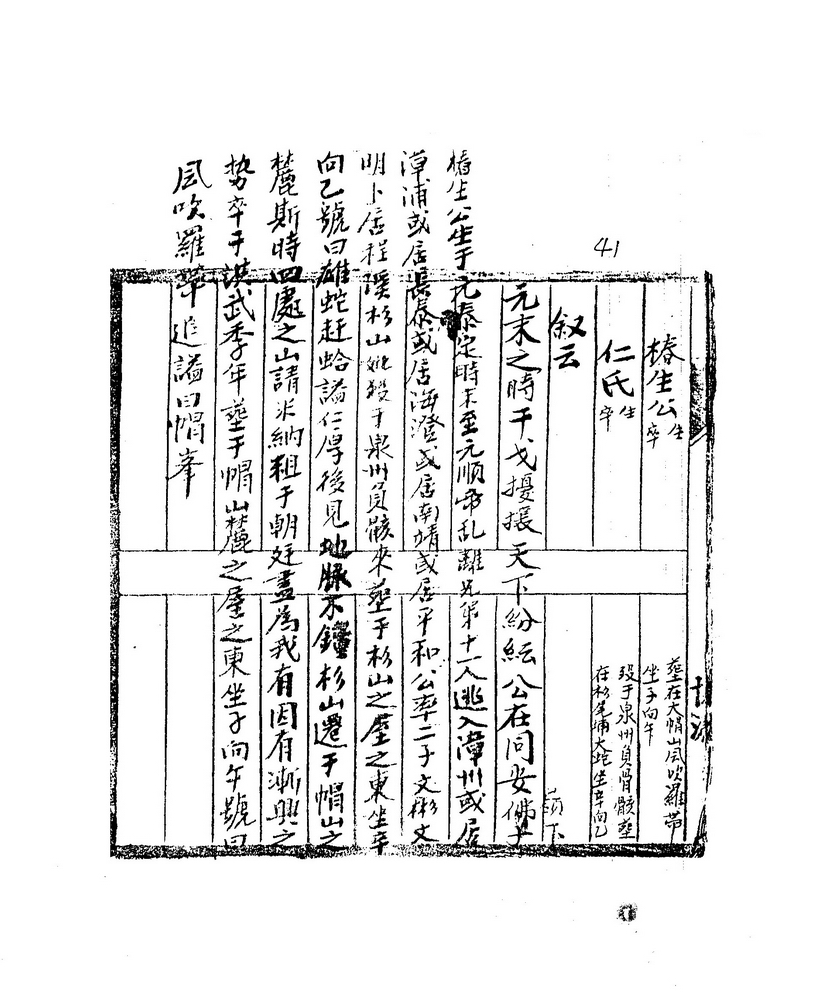 41
椿生公 生 卒 塟在大帽山風吹羅帶
坐子向午
仁氏 生 卒 歿于泉州負骨骸塟
在杉尾埔大坵坐辛向乙
叙云
元末之時干戈擾攘天下紛紜公在同安佛子
嶺下
椿生公生于元泰定時末至元順帝乱離兄弟十一人逃入漳州或居
漳浦或居長泰或居海澄或居南靖或居平和公率二子文彬文
明卜居程溪杉山妣殁于泉州負骸來塟于杉山之屋之東坐辛
向乙號曰雄蛇赶蛤謚仁厚後見地脉不鐘杉山遷于帽山之
麓斯時四處之山請米納粗于朝廷盡為我有因有漸興之
势卒于洪武季年塟于帽山麓之屋之東坐子向午號曰
風吹羅帶追謚曰帽峯